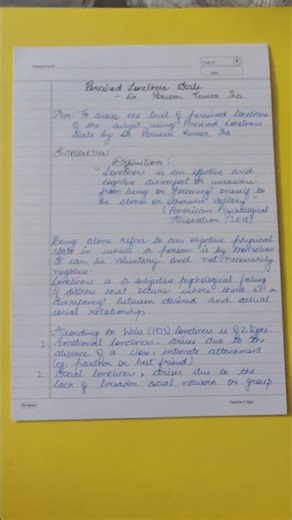 Assignment
Page No.
Date
Perceived Loneliness Scale
- Dr Praveen Kumar Jha
Aim: To assess the level of perceived loneliness
of the subject using Perceived Loneliness
Scale by Dr Praveen Kumar Jha
INTRODUCTION
Definition:
"Loneliness is an affective and
cognitive discomfort or uneasiness
from being or perceiving oneself to
be alone or otherwise solitary"
(American Psychological
Association
Being alone refers to an objective physical
state in which a person is by themselves
It can be voluntary and not necessarily
negative
Loneliness is a subjective psychological feeling
of distress that occurs when there is a
discrepancy between desired and actual
social relationships.
According to Weiss (1973) loneliness is of 2 types:
1. Emotional loneliness, arises due to the
absence of a close, intimate attachment
(eg. partner or best friend)
2. Social loneliness, arises due to the
lack of broader social network or group
Teacher's Sign